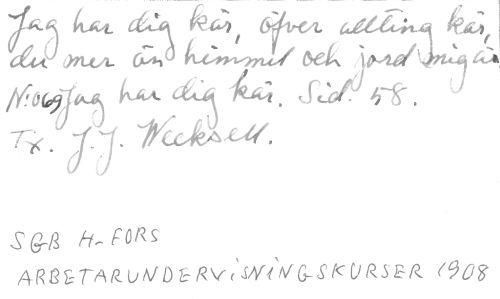 Jag har dig kär, öfver allting kär,
du mer än himmel och jord mig är
N:o 69 Jag har dig kär. Sid. 58.
Tx. J. J. Wecksell.
SGB H-FORS
ARBETARUNDERVISNINGSKURSER 1908